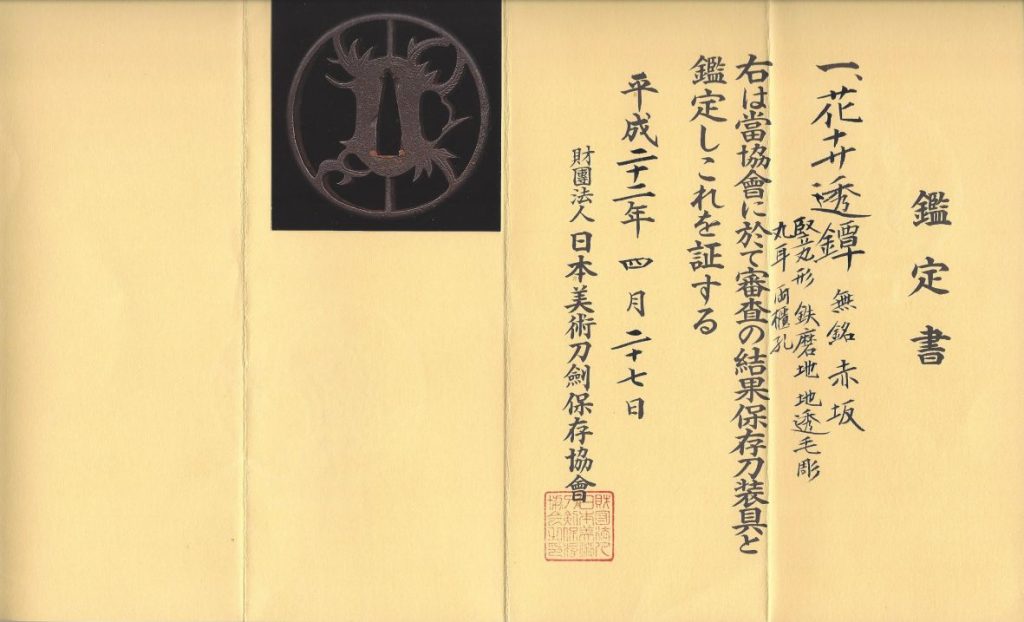 鑑定書
一、花卉透鐔 無銘 赤坂
竪丸形 鉄磨地 地透毛彫
丸耳 両櫃孔
右は當協會に於て審査の結果保存刀装具と
鑑定しこれを証する
平成二十二年 四月 二十七日
財團法人 日本美術刀劍保存協會